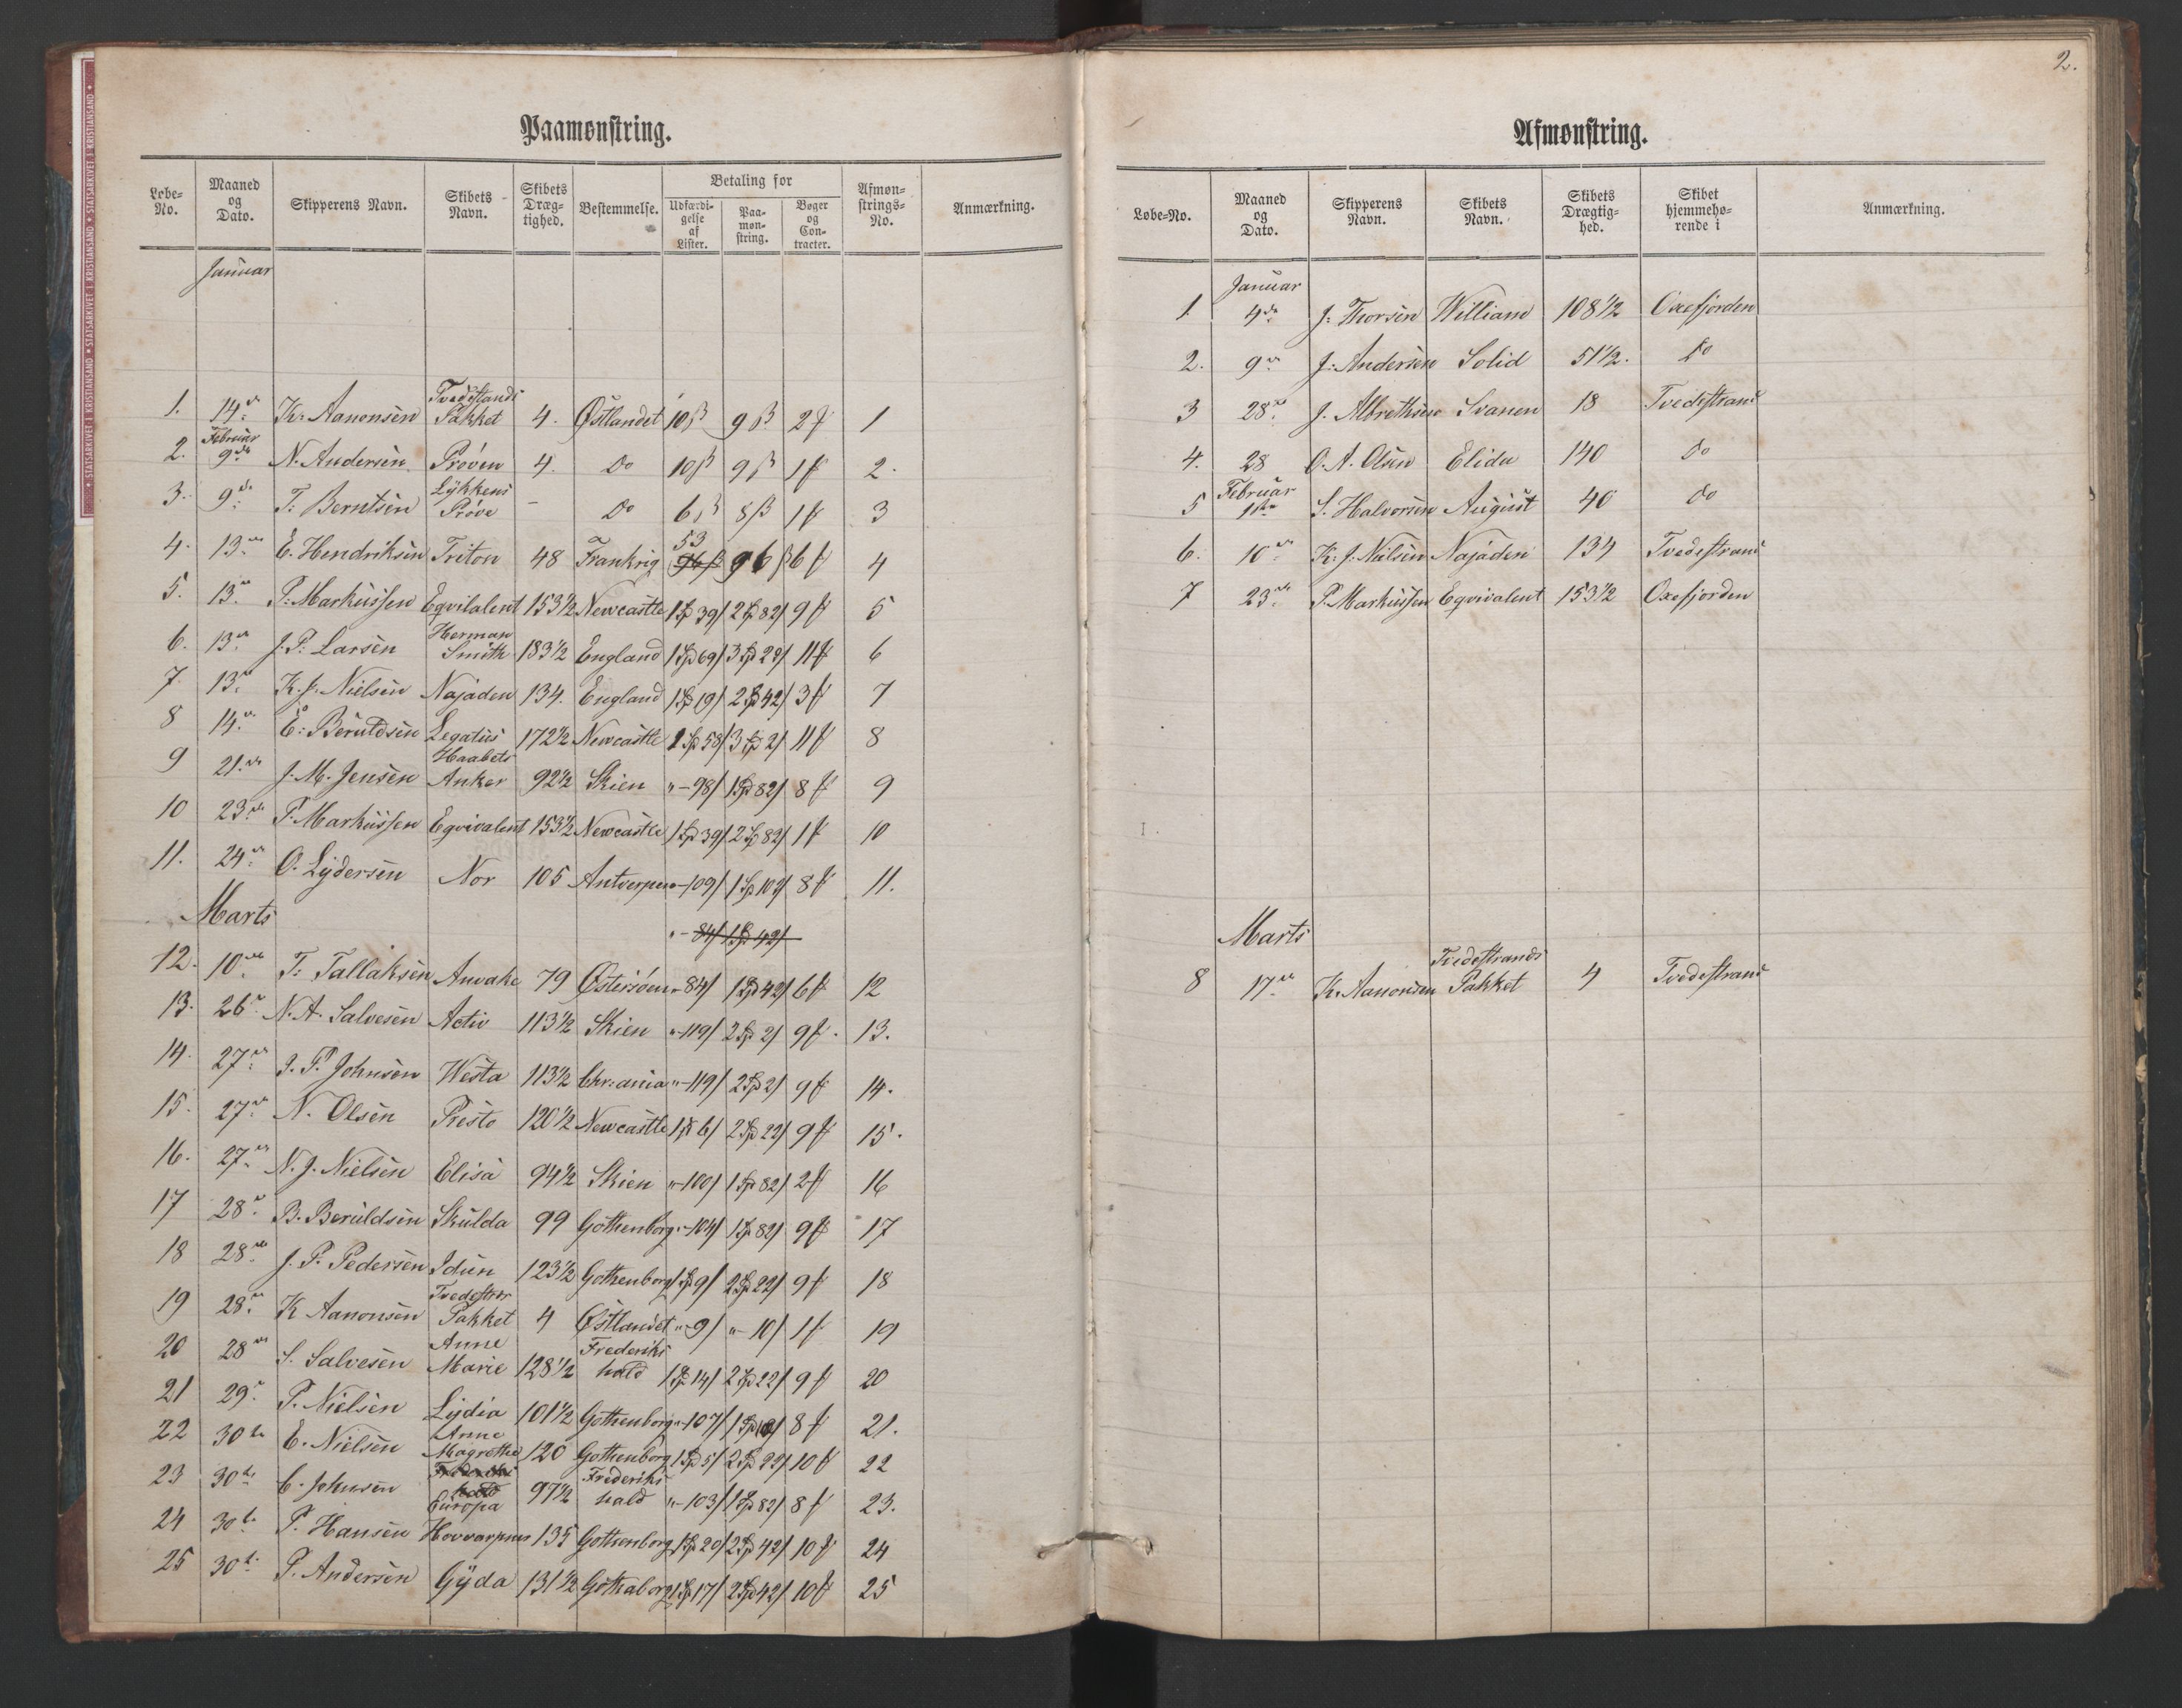 STATSARKIVET I KRISTIANSAND • STATSARKIVET I KRISTIANSAND • STATSARKIVET I KRISTIANSAND • STATSARKIVET I KRISTIANSAND
Paamønstring.
Løbe-No. Maaned og Dato. Skipperens Navn. Skibets Navn. Skibets Dræg-tighed. Bestemmelse. Betaling for Udfærdi-gelse af Lister. Paa-møn-string. Bøger og Con-tracter. Afmøn-strings-No. Anmærkning.
Januar
1. 14de K. Aanonsen Tvedestrands Pakket 4. Østlandet 10 β 9 β 2 f 1
Februar
2. 9de N. Andersen Prøven 4. Do 10 β 9 β 1 f 2.
3. 9de T. Berntsen Lykkens Prøve - Do 6 β 8 β 1 f 3
4. 13de E. Hendriksen Triton 48 Frankrig 53 96 β 6 f 4
5. 13de P. Markussen Eqvilalent 153½ Newcastle 1 Sp 39/ 2 Sp 82/ 9 f 5
6. 13de J. P. Larsen Herman Smith 183½ England 1 Sp 69/ 3 Sp 22/ 11 f 6
7 13de K. J. Nielsen Najaden 134. England 1 Sp 19/ 2 Sp 42/ 3 f 7
8 14de E. Beruldsen Legatus 172½ Newcastle 1 Sp 58/ 3 Sp 2/ 11 f 8
9 21de J. M. Jensen Haabets Anker 92½ Skien "-98/ 1 Sp 82/ 8 f 9
10 23de P. Markussen Eqvivalent 153½ Newcastle 1 Sp 39/ 2 Sp 82/ 1 f 10
11. 24de O. Lydersen Nor 105 Antverpen "-109/ 1 Sp 102/ 8 f 11.
Marts
"-84/ 1 Sp 42/
12. 10de T. Tallaksen Anvake 79 Østersøen "-84/ 1 Sp 42/ 6 f 12
13. 26de N. A. Salvesen Activ 113½ Skien "-119/ 2 Sp 2/ 9 f. 13.
14. 27de J. P. Johnsen Westa 113½ Chr:ania "-119/ 2 Sp 2/ 9 f 14.
15. 27de N. Olsen Presto 120½ Newcastle 1 Sp 6/ 2 Sp 22/ 9 f 15.
16. 27de N. J. Nielsen Elisa 94½ Skien "-100/ 1 Sp 82/ 2 f 16
17 28de B. Beruldsen Skulda 99 Gothenborg "-104/ 1 Sp 82/ 9 f 17
18 28de J. P. Pedersen Idun 123½ Gothenborg 1 Sp 9/ 2 Sp 22/ 9 f 18
19 28de K Aanonsen Tvedestrs Pakket 4 Østlandet "-9/ "-10/ 1 f 19
20 28de S. Salvesen Anne Marie 128½ Frederiks hald 1 Sp 14/ 2 Sp 22/ 9 f 20
21 29de P. Nielsen Lydia 101½ Gothenborg "-107/ 1 Sp 102/ 8 f 21.
22 30te E. Nielsen Anne Magrethe 120 Gothenborg 1 Sp 5/ 2 Sp 22/ 10 f 22
23 30te C. Johnsen Frederiks hald Europa 97½ Frederiks hald "-103/ 1 Sp 82/ 8 f 23.
24 30te P. Hansen 135 Gothenborg 1 Sp 20/ 2 Sp 42/ 10 f 24
25 30te P. Andersen Gyda 131½ Gothaborg 1 Sp 17/ 2 Sp 42/ 10 f 25
2.
Afmønstring.
Løbe-No. Maaned og Dato. Skipperens Navn. Skibets Navn. Skibets Drægtig-hed. Skibet hjemmehø-rende i Anmærkning.
Januar
1 4de J. Thorsen William 108½ Oxefjorden
2. 9de J. Andersen Solid 51½. Do
3 28de J. Albrethsen Svanen 18 Tvedestrand
4. 28 O. A. Olsen Elida 140 Do
Februar
5 1ste S. Halvorsen August 40 do
6. 10de K. J. Nielsen Najaden 134 Tvedestrand
7 23de P. Markussen Eqvivalent 153½ Oxefjorden
Marts
8 17de K. Aanonsen Tvedestrands Pakket 4 Tvedestrand